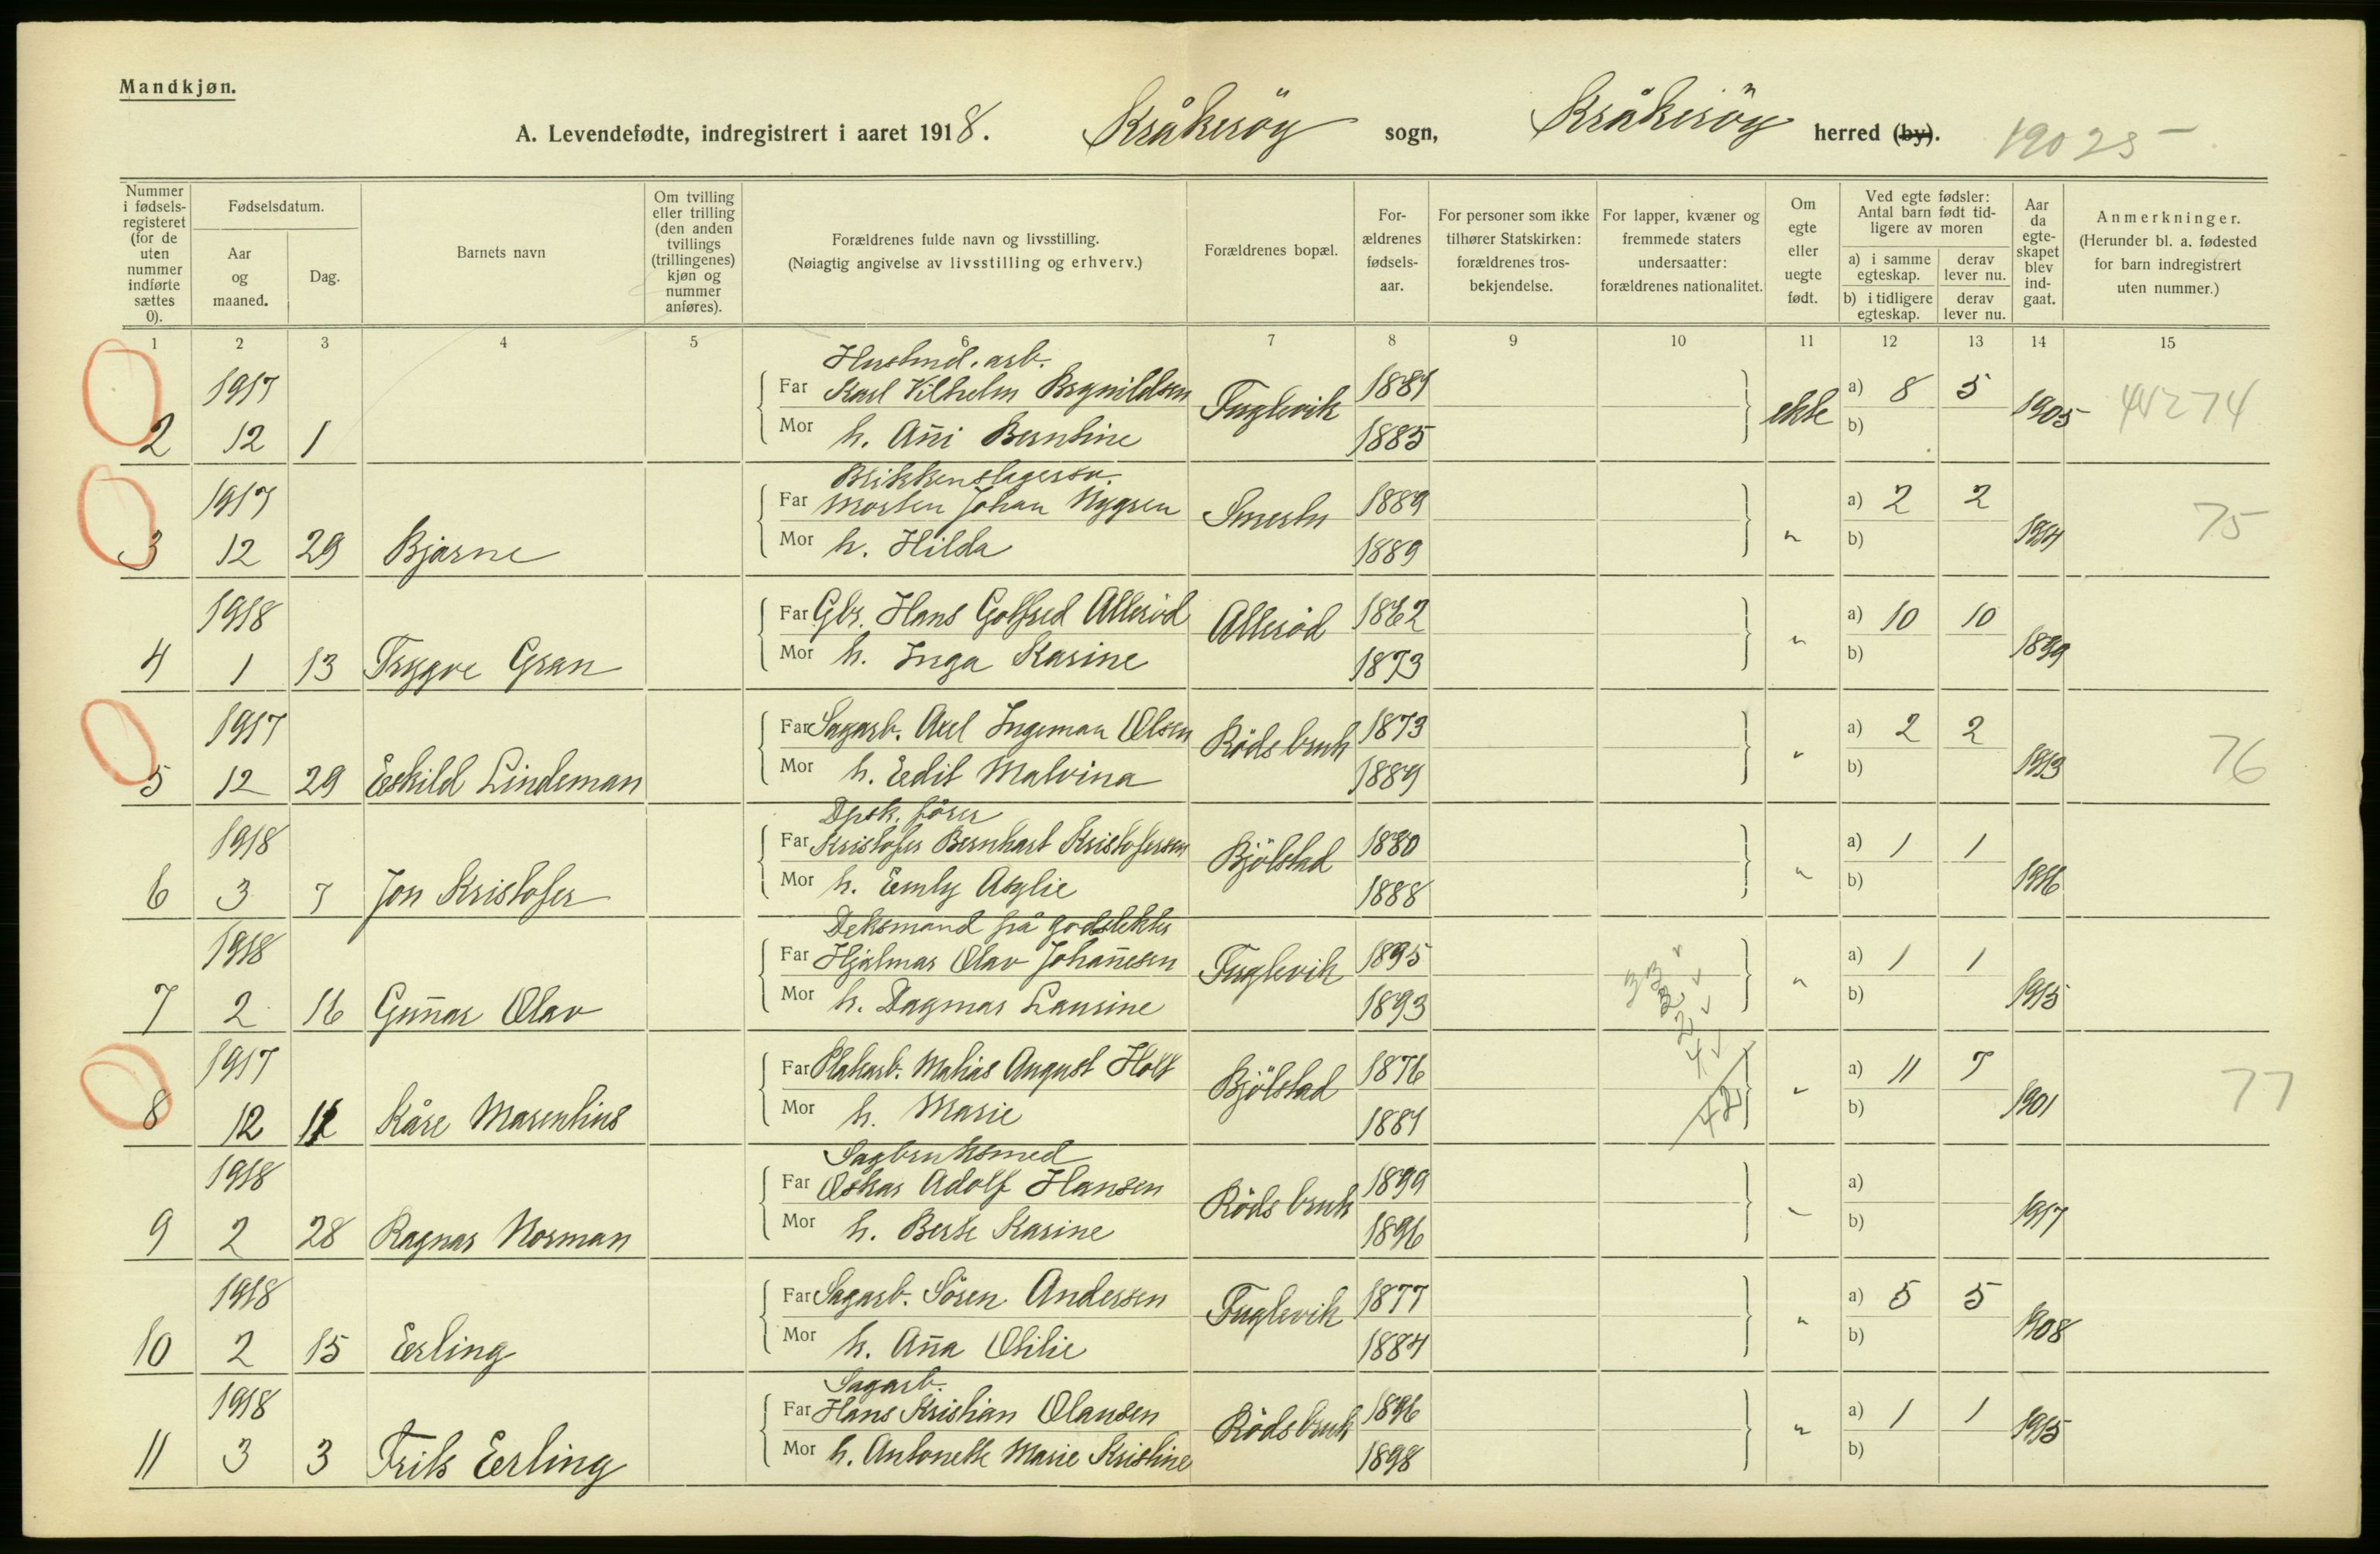 Mandkjøn.
A. Levendefødte, indregistrert i aaret 1918. Kråkeröy sogn, Kråkeröy herred (by). 19025
Nummer i fødselsregisteret (for de uten nummer indførte sættes 0).
Fødselsdatum.
Aar og maaned.
Dag.
Barnets navn
Om tvilling eller trilling (den anden tvillings (trillingenes) kjøn og nummer anføres).
Forældrenes fulde navn og livsstilling.
(Nøiagtig angivelse av livsstilling og erhverv.)
Forældrenes bopæl.
Forældrenes fødselsaar.
For personer som ikke tilhører Statskirken: forældrenes trosbekjendelse.
For lapper, kvæner og fremmede staters undersaatter: forældrenes nationalitet.
Om egte eller uegte født.
Ved egte fødsler: Antal barn født tidligere av moren
a) i samme egteskap. derav lever nu.
b) i tidligere egteskap. derav lever nu.
Aar da egteskapet blev indgaat.
Anmerkninger.
(Herunder bl. a. fødested for barn indregistrert uten nummer.)
1 2 3 4 5 6 7 8 9 10 11 12 13 14 15
Husmd. arb.
1917 Far Karl Vilhelm Brynildsen Fuglevik 1881 ekte a) 8 5 1905 44274
2 12 1 Mor h. Añi Berntine 1885 b)
Blikkenslagersv.
1917 Far Morten Johan Nygren 1889 " a) 2 2 1914 75
3 12 29 Bjarne Mor h. Hilda 1889 b)
1918 Far Gbr. Hans Golfred Alleröd Alleröd 1862 " a) 10 10 1899
4 1 13 Trygve Gran Mor h. Inga Karine 1873 b)
1917 Far Sagarb. Axel Ingeman Olsen Röds bruk 1873 " a) 2 2 1913 76
5 12 29 Eskild Lindeman Mor h. Edit Malvina 1889 b)
Dpsk. förer
1918 Far Kristofer Bernhart Kristofersen Bjölstad 1880 " a) 1 1 1916
6 3 7 Jon Kristofer Mor h. Emly Aaglie 1888 b)
Deksmand på godslekter
1918 Far Hjalmar Olav Johañesen Fuglevik 1895 " a) 1 1 1915
7 2 16 Guñar Olav Mor h. Dagmar Laurine 1893 b)
1917 Far Platearb. Matias August Holt Bjölstad 1876 42 " a) 11 7 1901 77
8 12 11 Kåre Marentius Mor h. Marie 1881 b)
Sagbruksmed
1918 Far Oskar Adolf Hansen Röds bruk 1899 " a) 1917
9 2 28 Ragnar Norman Mor h. Berte Karine 1896 b)
1918 Far Sagarb. Sören Andersen Fuglevik 1877 " a) 5 5 1908
10 2 15 Erling Mor h. Aña Otilie 1884 b)
Sagarb.
1918 Far Hans Kristian Olausen Röds bruk 1896 " a) 1 1 1915
11 3 3 Frits Erling Mor h. Antonette Marie Kristine 1898 b)